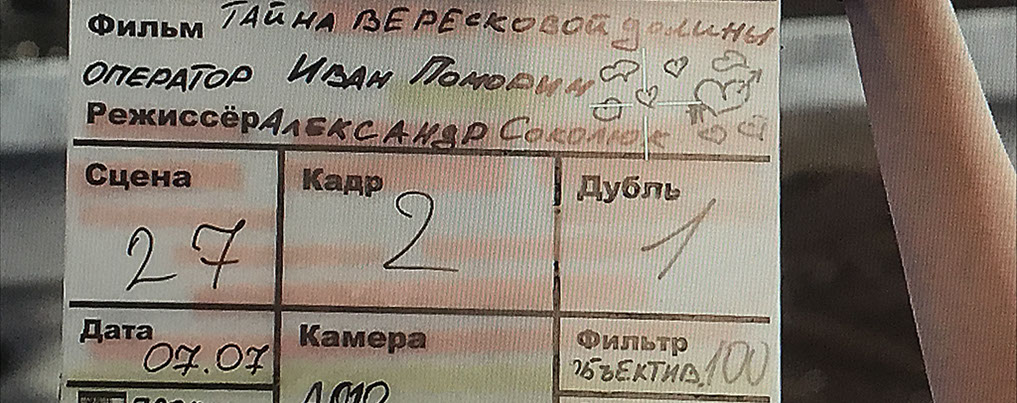 Фильм ТАЙНА ВЕРЕСКОВОЙ ДОЛИНЫ
ОПЕРАТОР ИВАН ПОМОРИН
Режиссёр АЛЕКСАНДР СОКОЛЮК
Сцена Кадр Дубль
27 2 1
Дата Камера Фильтр
07.07 ОБЪЕКТИВ 100